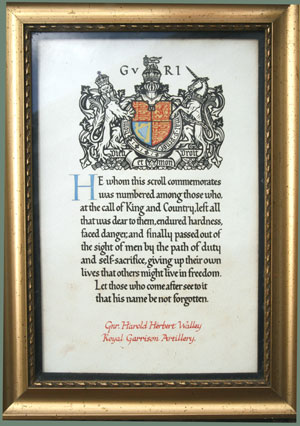 G V R I
Dieu et mon Droit
HE whom this scroll commemorates
was numbered among those who,
at the call of King and Country, left all
that was dear to them, endured hardness,
faced danger, and finally passed out of
the sight of men by the path of duty
and self-sacrifice, giving up their own
lives that others might live in freedom.
Let those who come after see to it
that his name be not forgotten.
Gnr. Harold Herbert Walley
Royal Garrison Artillery.